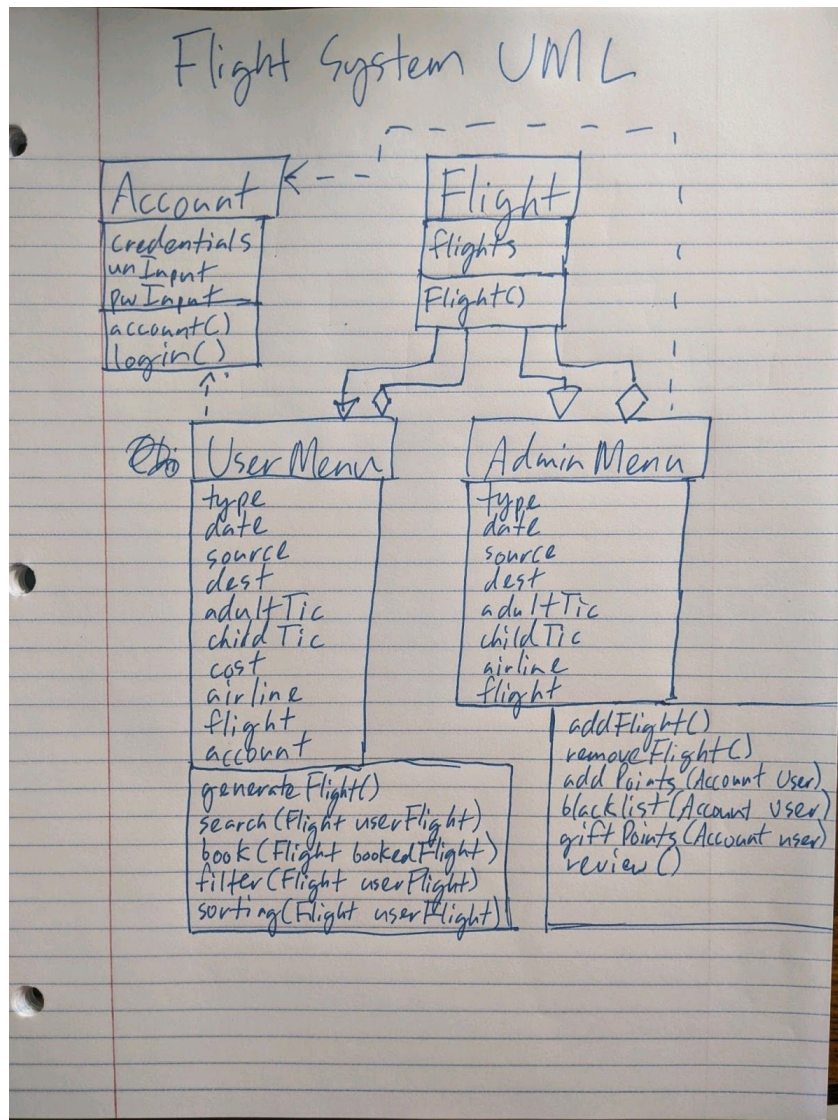 Flight System UML
Account
credentials
unInput
pwInput
account()
login()
Flight
flights
Flight()
UserMenu
type
date
source
dest
adultTic
childTic
cost
airline
flight
account
generateFlight()
search(Flight userFlight)
book(Flight bookedFlight)
filter(Flight userFlight)
sorting(Flight userFlight)
Admin Menu
type
date
source
dest
adultTic
childTic
airline
flight
addFlight()
removeFlight()
add Points(Account User)
blacklist(Account User)
gift Points(Account user)
review()